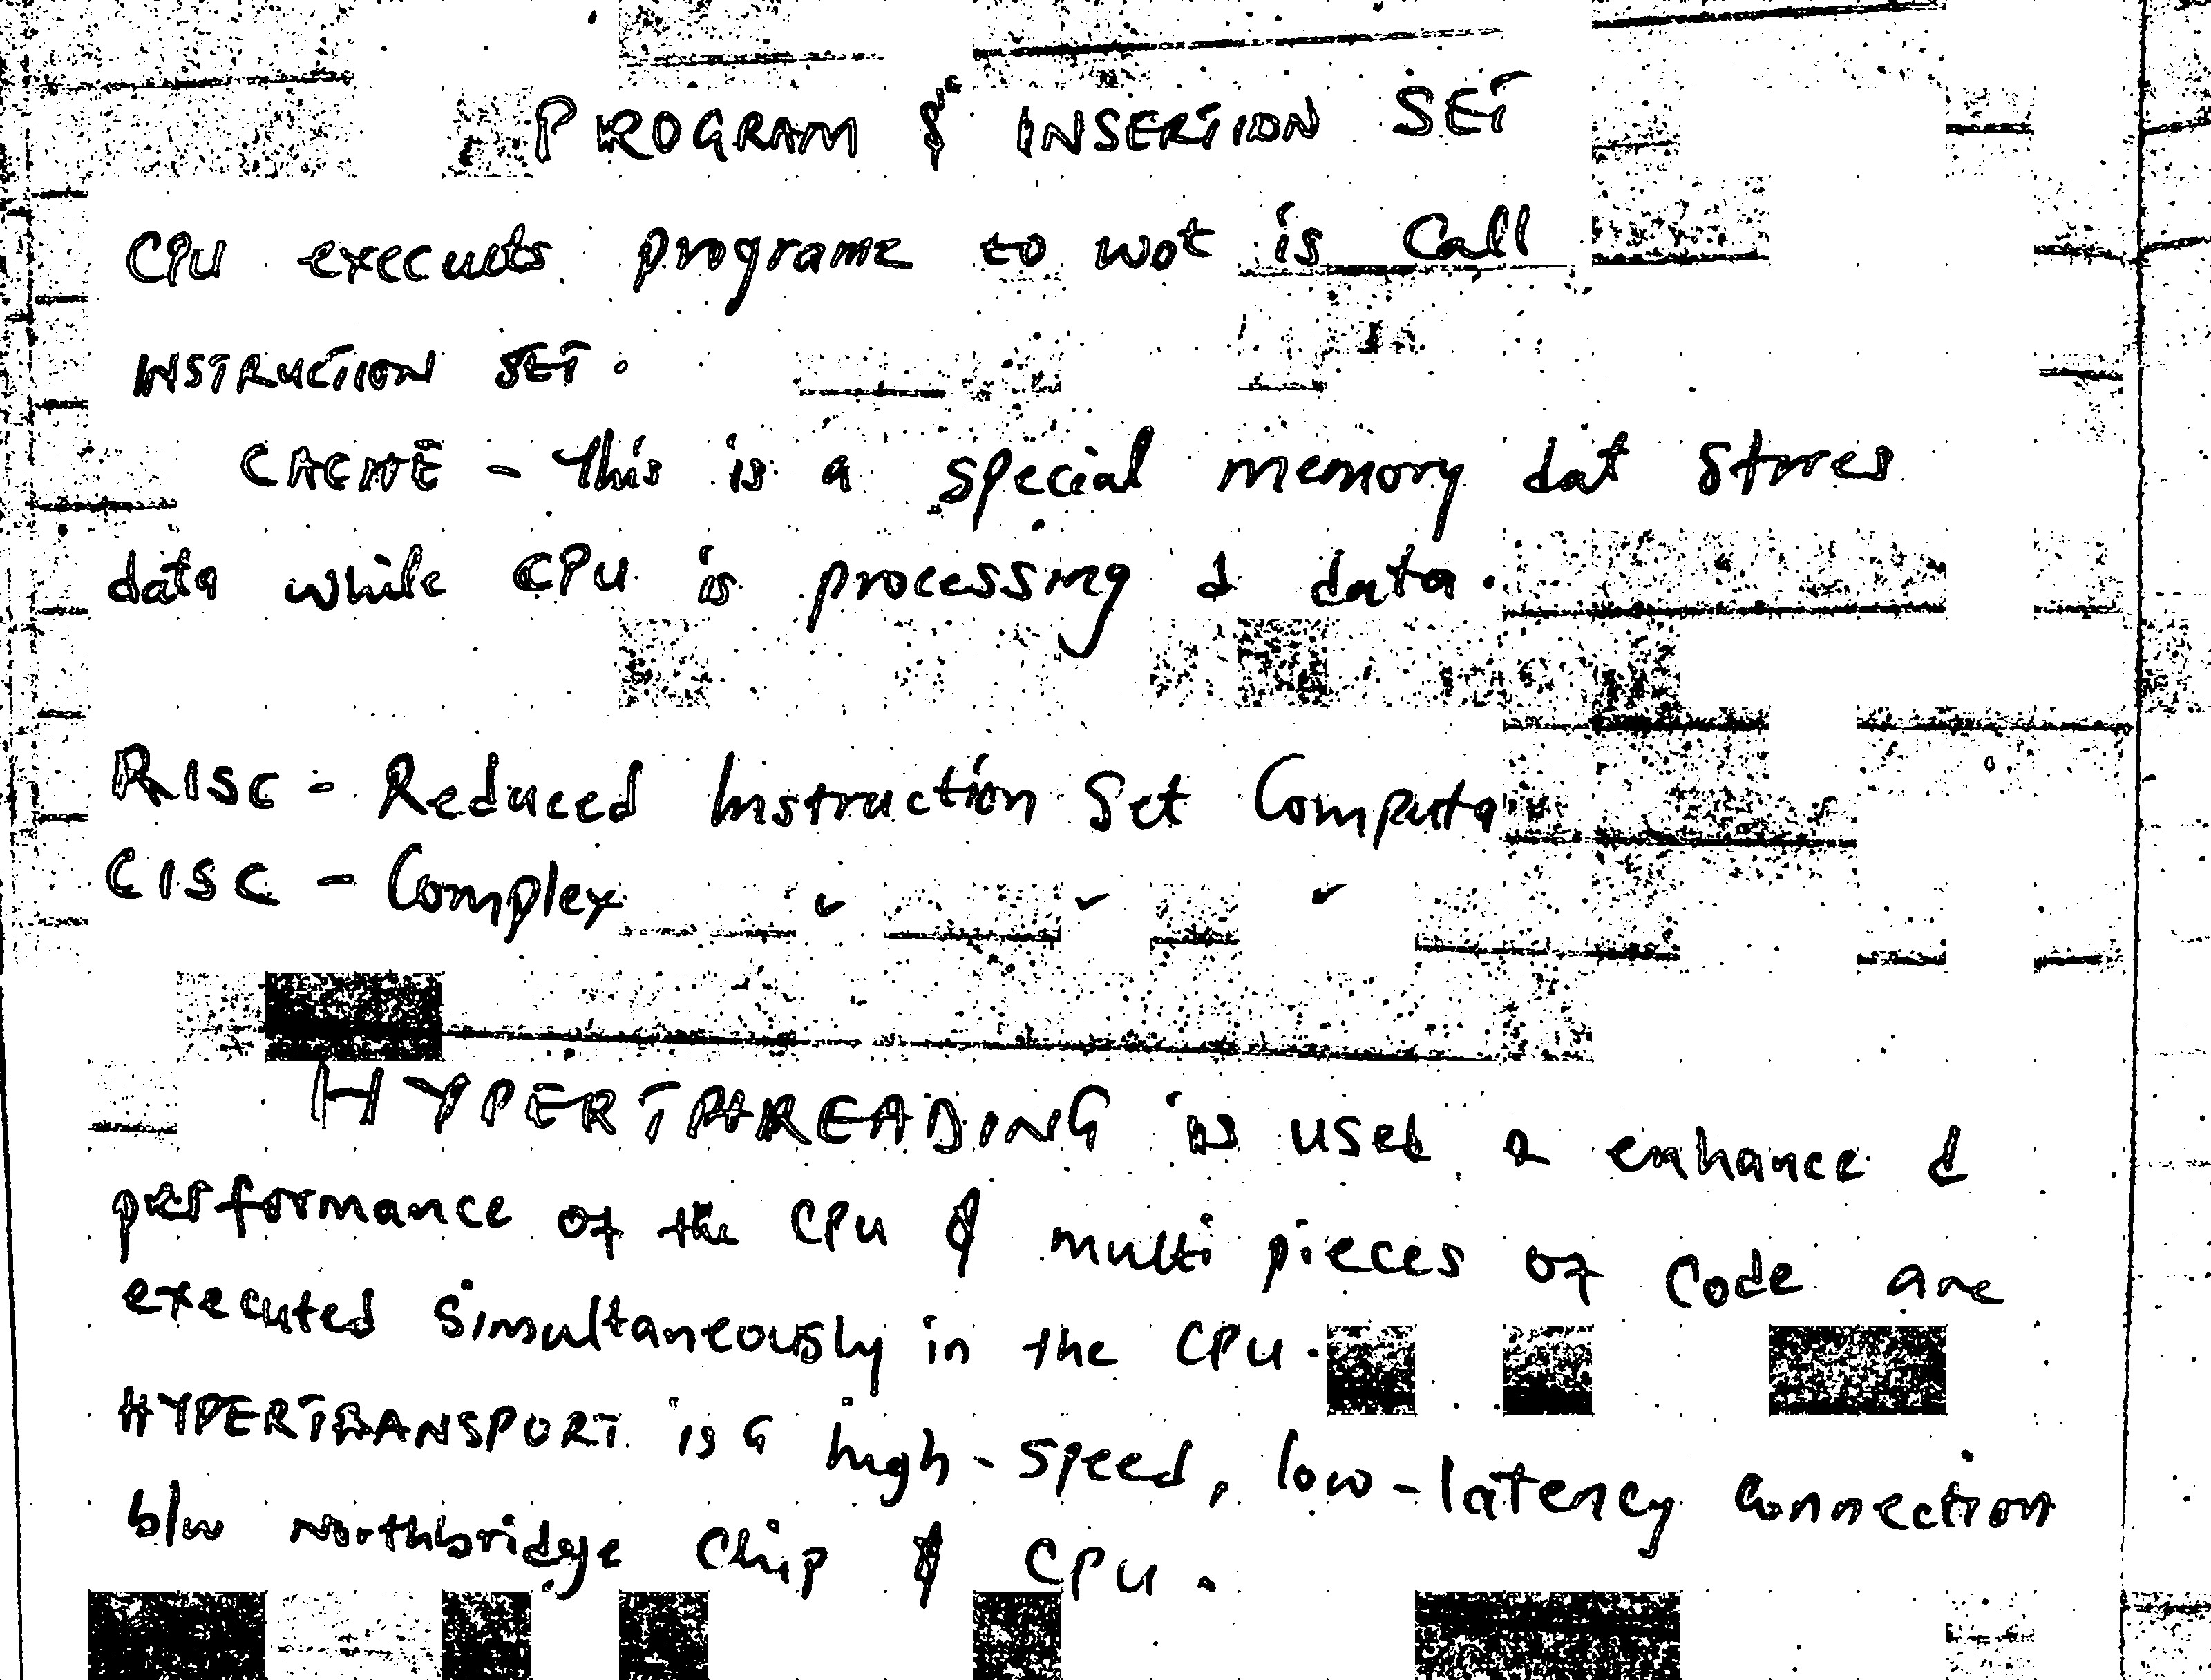 PROGRAM & INSERTION SET
CPU execuets programe to wot is call
INSTRUCTION SET.
CACHE - This is a special memory dat stores
data while CPU is processing d data.
RISC - Reduced Instruction Set Computer
CISC - Complex " " "
HYPERTHREADING is used 2 enhance d
performance of the CPU & multi pieces of code are
executed simultaneously in the CPU.
HYPERTRANSPORT is a high-speed, low-latency connection
b/w northbridge chip & CPU.